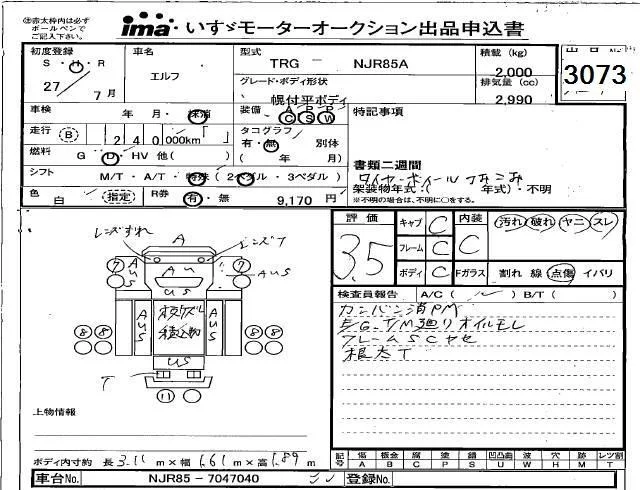 ㊟赤太枠内は必ず
ボールペンで
ご記入下さい。
ima いすゞモーターオークション出品申込書
初度登録 車名 型式 積載 (kg) 出品No.
S・H・R エルフ TRG － NJR85A 2,000 3073
27 / 7月 グレード・ボディ形状 排気量 (cc)
幌付平ボディ 2,990
車検 年 月・抹消 装備 A P P C S W 特記事項
走行 B 240,000km タコグラフ
有・無 別体
燃料 G D・HV 他( ) ( 年 月) 書類二週間
タイヤ・ホイールフぞろい
シフト M/T・A/T・特殊 (2ペダル・3ペダル) 架装物年式:( 年式)・不明
※不明の場合は、不明に○をする。
色 白 指定 R券 有・無 9,170 円
評価 キャブ C 内装 汚れ 破れ ヤニ スレ
3.5 フレーム C C
ボディ C Fガラス 割れ 線 点傷 イバリ
レンズずれ A レンズT
7 AUS AU AUS 7
US AUS
AUS AUS
8 8 8 8
積込物
US
T
11
検査員報告 A/C ( ) B/T ( )
カンバン消PM
E/G、T/M廻りオイルモレ
フレームSCヤセ
根太T
上物情報
ボディ内寸約 長 3.11 m×幅 1.61 m×高 1.89 m
記号 傷 板金 腐 塗 錆 凹凸曲 波 穴 跡 レツ割
A B C P S U W H M T
車台No. NJR85－7047040 登録No.